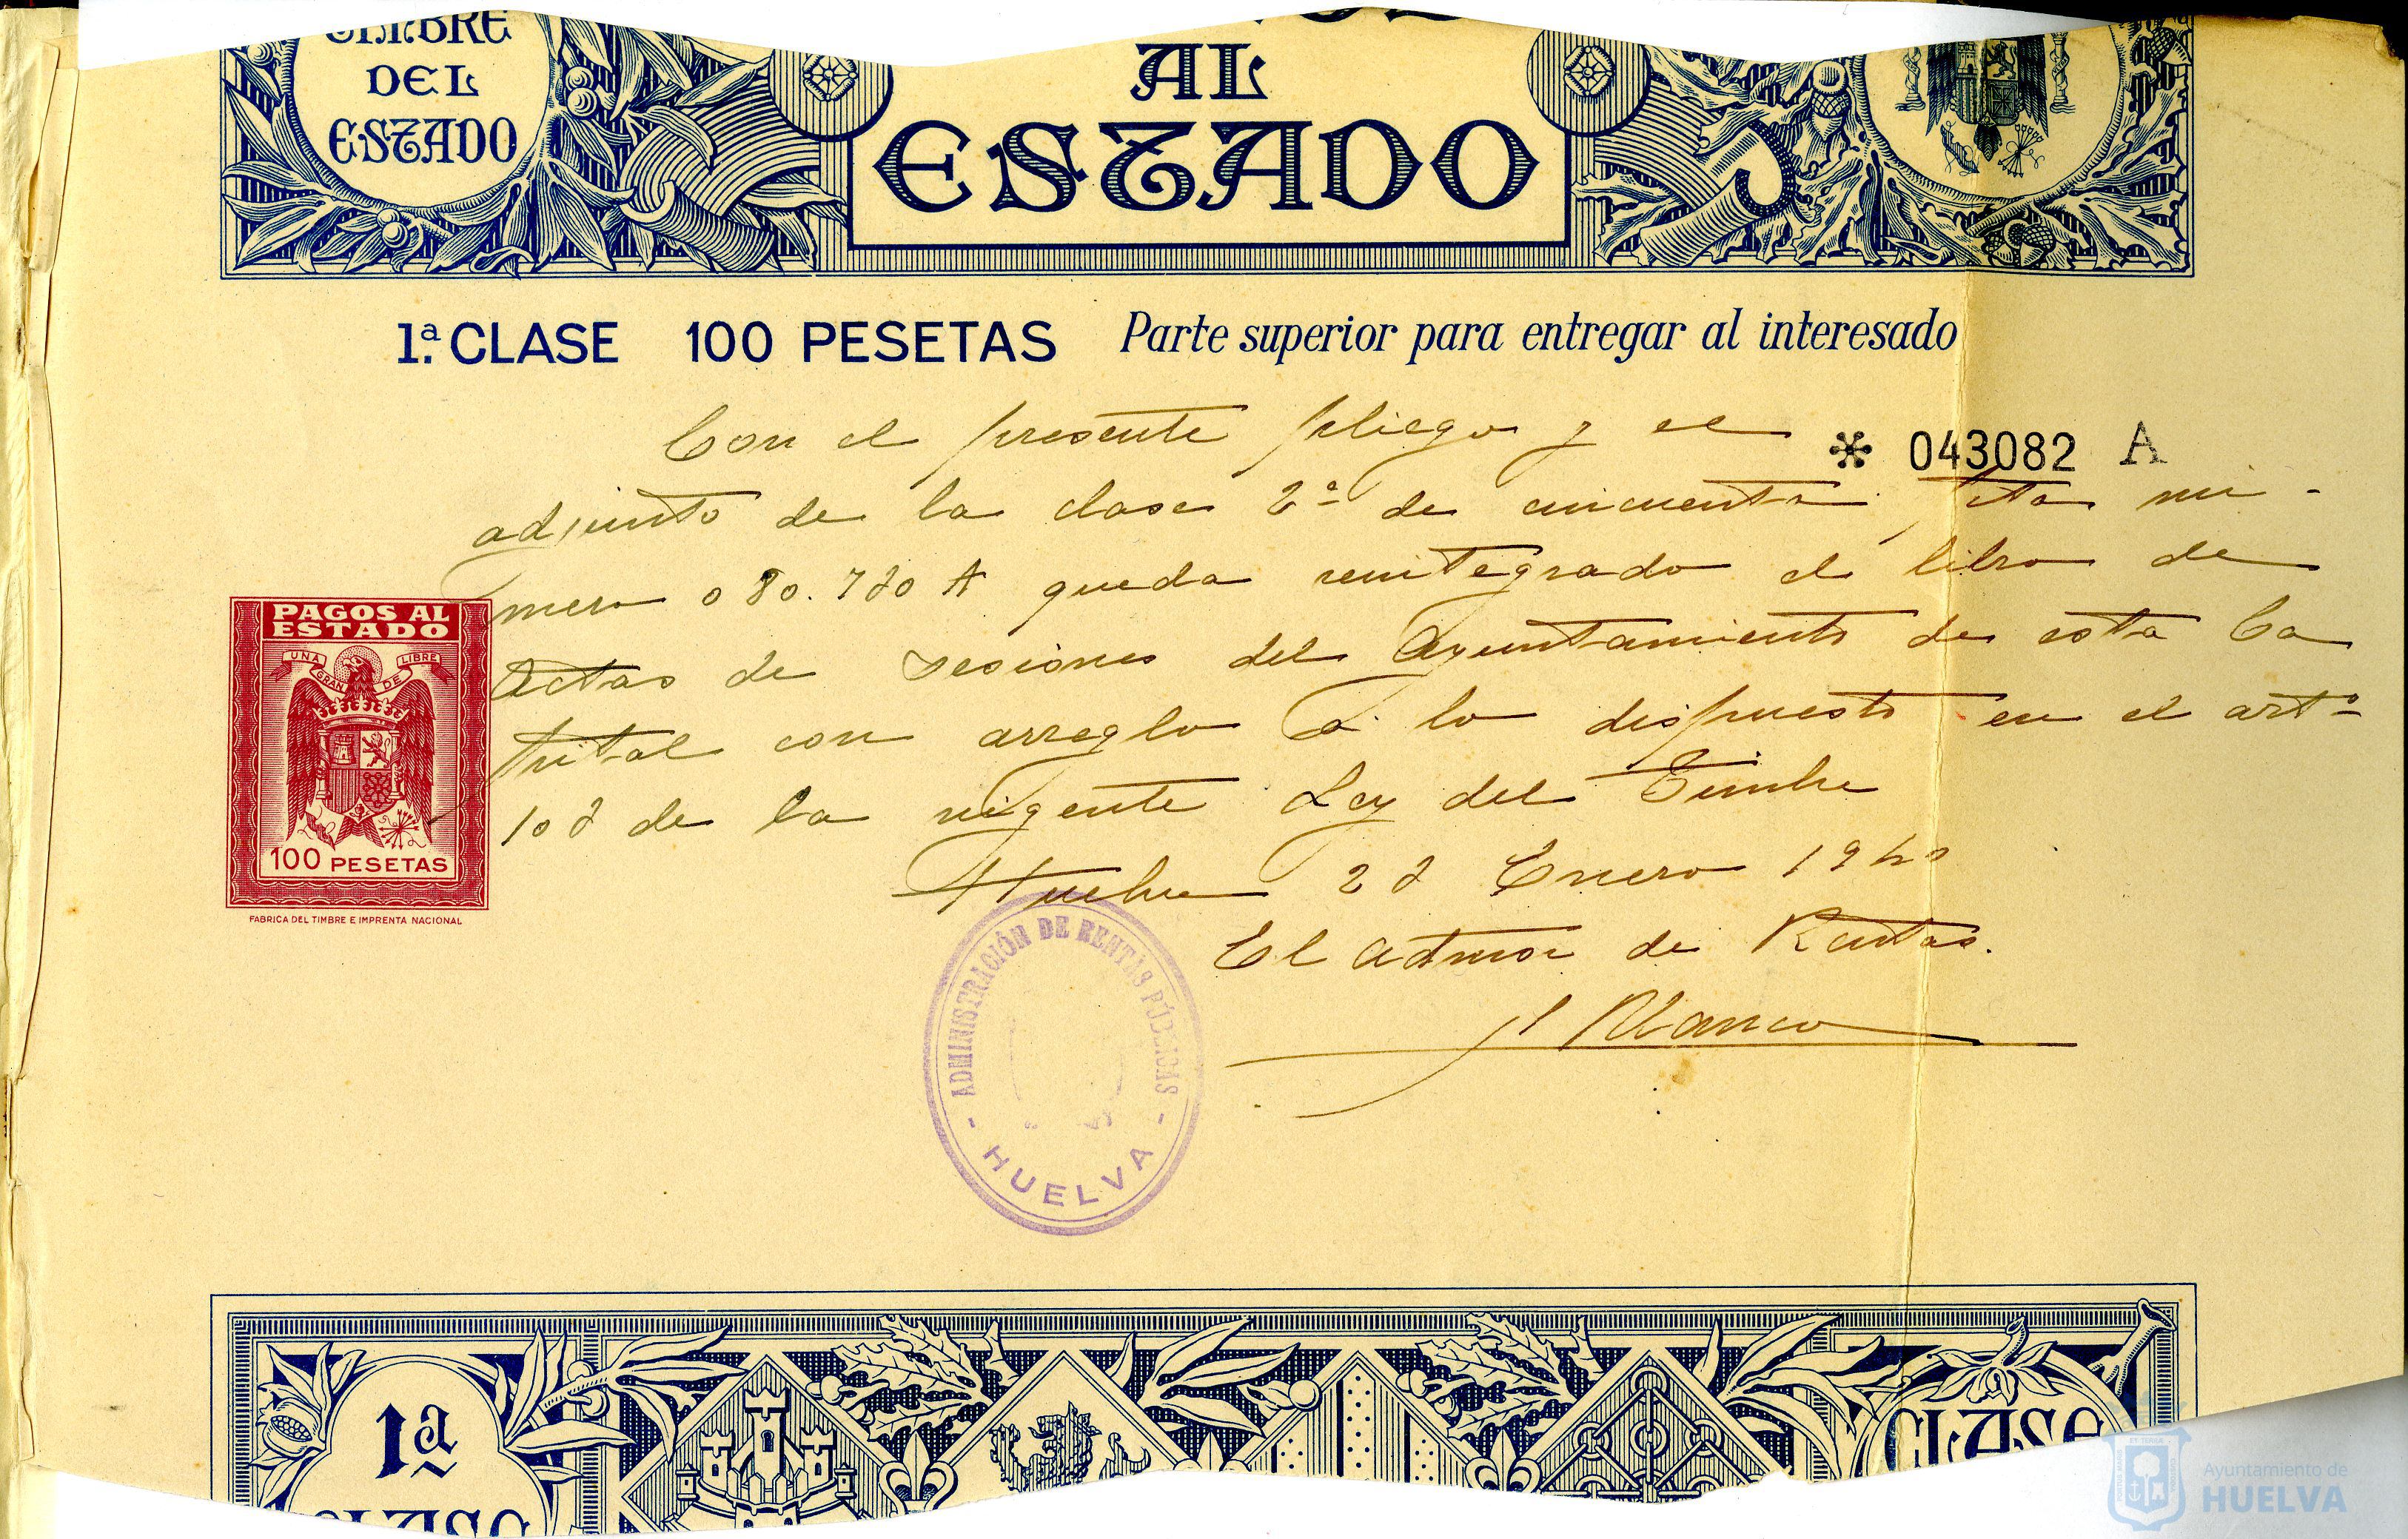 TIMBRE
DEL
ESTADO
AL
ESTADO
1.ª CLASE 100 PESETAS Parte superior para entregar al interesado
* 043082 A
Con el presente pliego y el
adjunto de la clase 2ª de cincuenta ptas nú-
mero 080.720 A queda reintegrado el libro de
Actas de sesiones del Ayuntamiento de esta Ca
pital con arreglo a lo dispuesto en el artº
102 de la vigente Ley del Timbre
Huelva 22 Enero 1940
El Admor de Rentas.
Blanco
PAGOS AL
ESTADO
UNA GRANDE LIBRE
100 PESETAS
FABRICA DEL TIMBRE E IMPRENTA NACIONAL
ADMINISTRACIÓN DE RENTAS PÚBLICAS
- HUELVA -
1ª
CLASE
CLASE
Ayuntamiento de
HUELVA